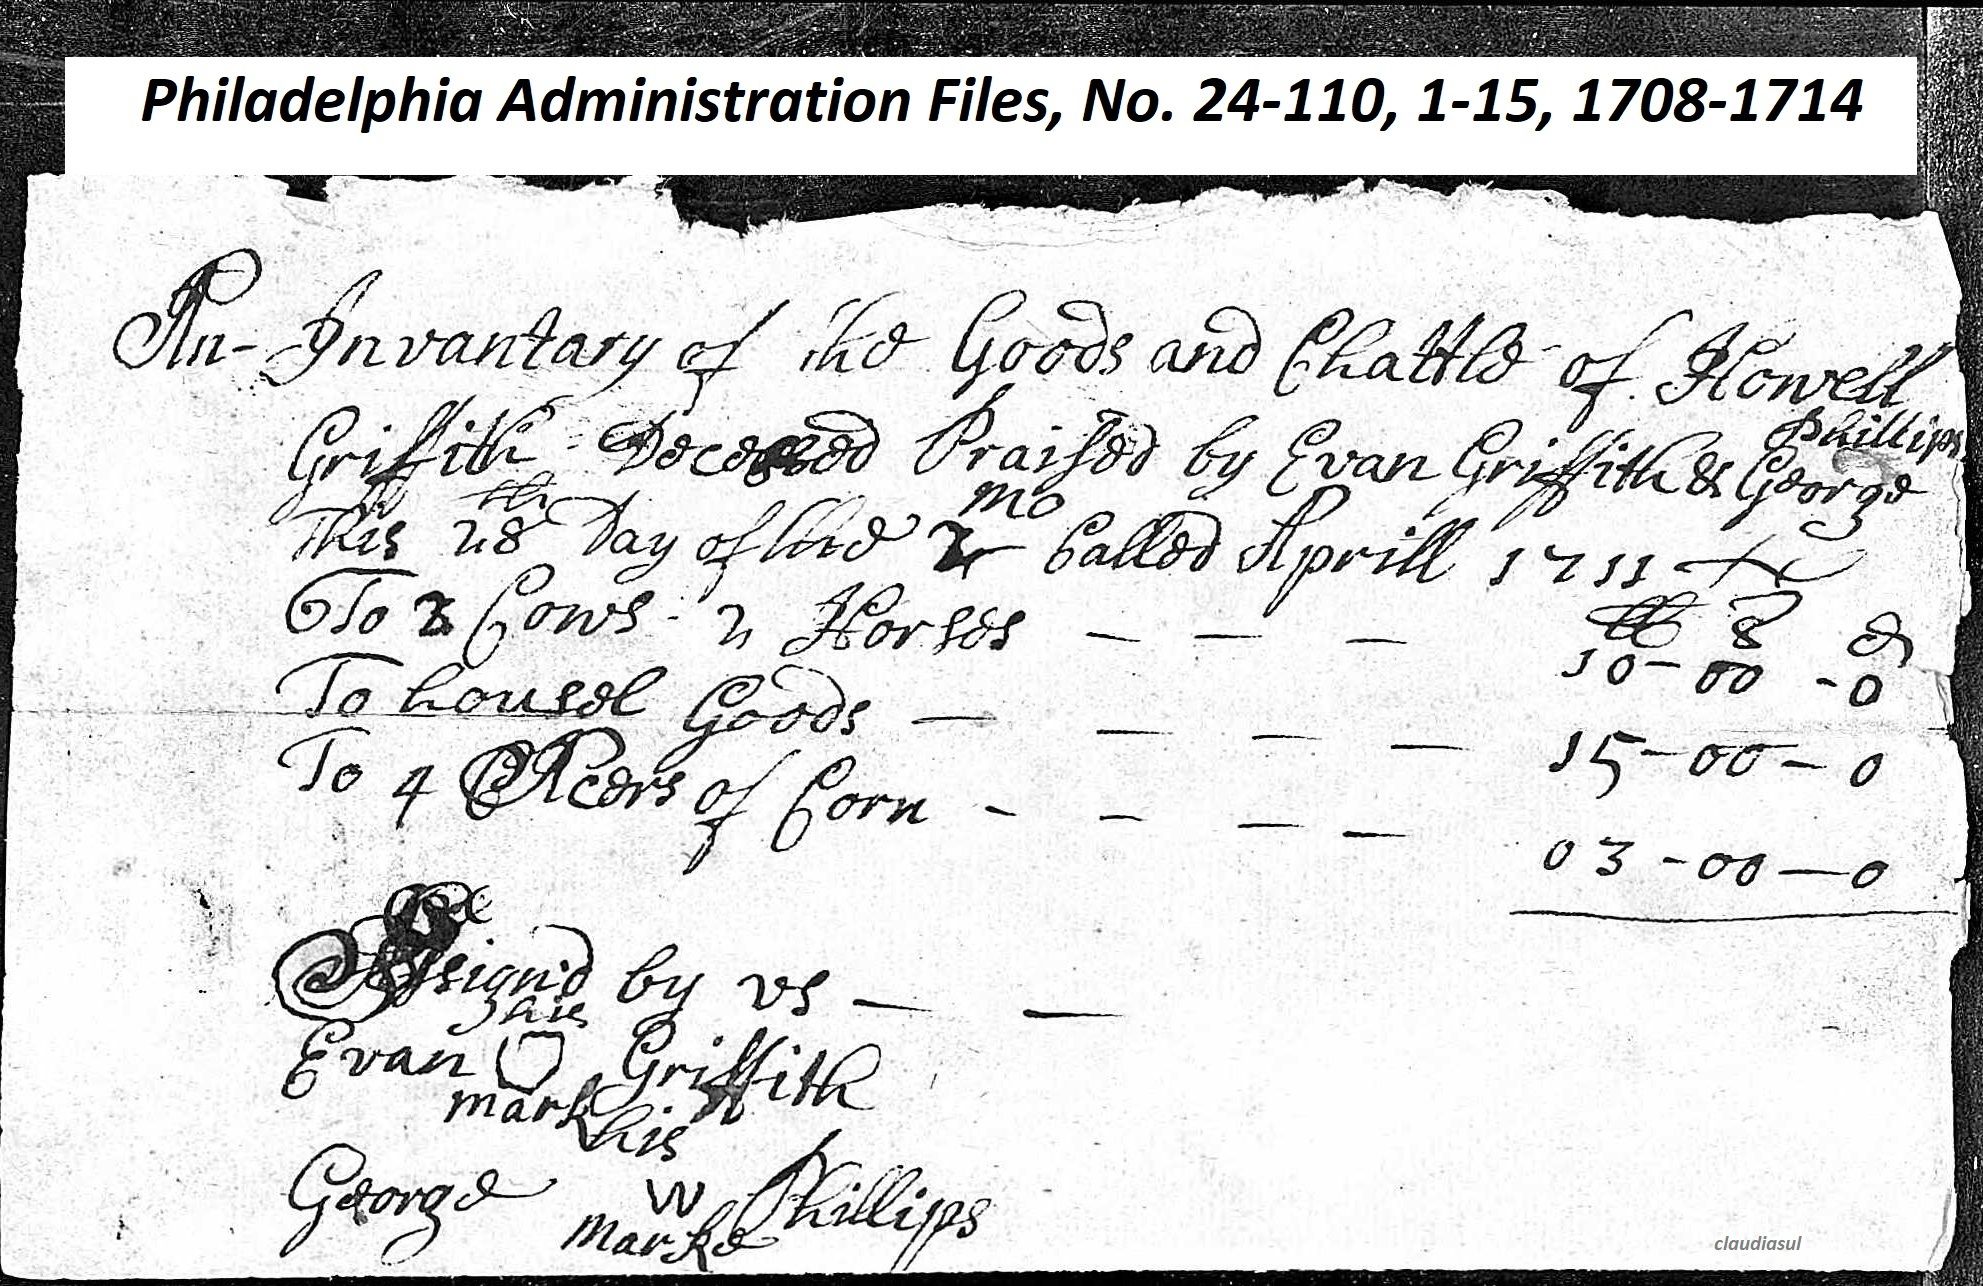 Philadelphia Administration Files, No. 24-110, 1-15, 1708-1714
An - Invantary of the Goods and Chattle of Howell
Griffith Deceased Praised by Evan Griffith & George Phillips
This 28th Day of the 2 mo Called Aprill 1711
To 3 Cows - 2 Horses — — — 10 - 00 - 0
To housel Goods — — — — 15 - 00 - 0
To 4 Acers of Corn - - — — 03 - 00 — 0
Assignd by vs — —
his
Evan Griffith
mark
his
George W Phillips
Marke
claudiasul